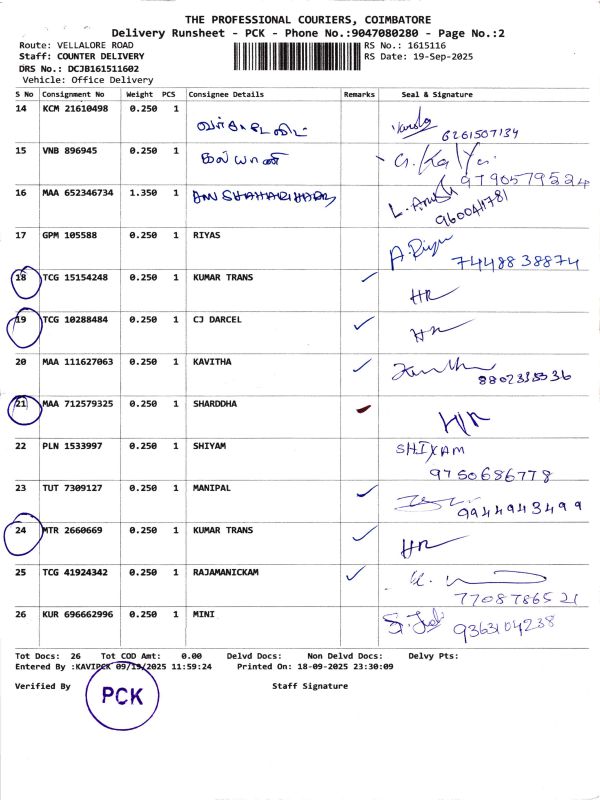 THE PROFESSIONAL COURIERS, COIMBATORE
Delivery Runsheet - PCK - Phone No.:9047080280 - Page No.:2
Route: VELLALORE ROAD RS No.: 1615116
Staff: COUNTER DELIVERY RS Date: 19-Sep-2025
DRS No.: DCJB161511602
Vehicle: Office Delivery
S No Consignment No Weight PCS Consignee Details Remarks Seal & Signature
14 KCM 21610498 0.250 1 6261507134
15 VNB 896945 0.250 1 கல்யாணி G. Kalyani 9790579524
16 MAA 652346734 1.350 1 L. 9600411781
17 GPM 105588 0.250 1 RIYAS A. Riyas 7448838874
18 TCG 15154248 0.250 1 KUMAR TRANS HR
19 TCG 10288484 0.250 1 CJ DARCEL HR
20 MAA 111627063 0.250 1 KAVITHA
21 MAA 712579325 0.250 1 SHARDDHA HR
22 PLN 1533997 0.250 1 SHIYAM SHIYAM 9750686778
23 TUT 7309127 0.250 1 MANIPAL 9944943499
24 MTR 2660669 0.250 1 KUMAR TRANS HR
25 TCG 41924342 0.250 1 RAJAMANICKAM 7708786521
26 KUR 696662996 0.250 1 MINI 9363104238
Tot Docs: 26 Tot COD Amt: 0.00 Delvd Docs: Non Delvd Docs: Delvy Pts:
Entered By :KAVIPCK 09/19/2025 11:59:24 Printed On: 18-09-2025 23:30:09
Verified By PCK Staff Signature